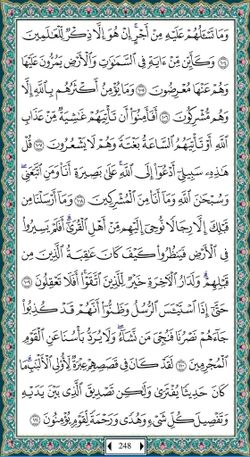 وَمَا تَسْـَٔلُهُمْ عَلَيْهِ مِنْ أَجْرٍ ۚ إِنْ هُوَ إِلَّا ذِكْرٌ لِّلْعَٰلَمِينَ
١٠٤ وَكَأَيِّن مِّنْ ءَايَةٍ فِى ٱلسَّمَٰوَٰتِ وَٱلْأَرْضِ يَمُرُّونَ عَلَيْهَا
وَهُمْ عَنْهَا مُعْرِضُونَ ١٠٥ وَمَا يُؤْمِنُ أَكْثَرُهُم بِٱللَّهِ إِلَّا
وَهُم مُّشْرِكُونَ ١٠٦ أَفَأَمِنُوٓا۟ أَن تَأْتِيَهُمْ غَٰشِيَةٌ مِّنْ عَذَابِ
ٱللَّهِ أَوْ تَأْتِيَهُمُ ٱلسَّاعَةُ بَغْتَةً وَهُمْ لَا يَشْعُرُونَ ١٠٧ قُلْ
هَٰذِهِۦ سَبِيلِىٓ أَدْعُوٓا۟ إِلَى ٱللَّهِ ۚ عَلَىٰ بَصِيرَةٍ أَنَا۠ وَمَنِ ٱتَّبَعَنِى ۖ
وَسُبْحَٰنَ ٱللَّهِ وَمَآ أَنَا۠ مِنَ ٱلْمُشْرِكِينَ ١٠٨ وَمَآ أَرْسَلْنَا مِن
قَبْلِكَ إِلَّا رِجَالًا نُّوحِىٓ إِلَيْهِم مِّنْ أَهْلِ ٱلْقُرَىٰٓ ۗ أَفَلَمْ يَسِيرُوا۟
فِى ٱلْأَرْضِ فَيَنظُرُوا۟ كَيْفَ كَانَ عَٰقِبَةُ ٱلَّذِينَ مِن
قَبْلِهِمْ ۗ وَلَدَارُ ٱلْءَاخِرَةِ خَيْرٌ لِّلَّذِينَ ٱتَّقَوْا۟ ۗ أَفَلَا تَعْقِلُونَ ١٠٩
حَتَّىٰٓ إِذَا ٱسْتَيْـَٔسَ ٱلرُّسُلُ وَظَنُّوٓا۟ أَنَّهُمْ قَدْ كُذِبُوا۟
جَآءَهُمْ نَصْرُنَا فَنُجِّىَ مَن نَّشَآءُ ۖ وَلَا يُرَدُّ بَأْسُنَا عَنِ ٱلْقَوْمِ
ٱلْمُجْرِمِينَ ١١٠ لَقَدْ كَانَ فِى قَصَصِهِمْ عِبْرَةٌ لِّأُو۟لِى ٱلْأَلْبَٰبِ ۗ مَا
كَانَ حَدِيثًا يُفْتَرَىٰ وَلَٰكِن تَصْدِيقَ ٱلَّذِى بَيْنَ يَدَيْهِ
وَتَفْصِيلَ كُلِّ شَىْءٍ وَهُدًى وَرَحْمَةً لِّقَوْمٍ يُؤْمِنُونَ ١١١
248